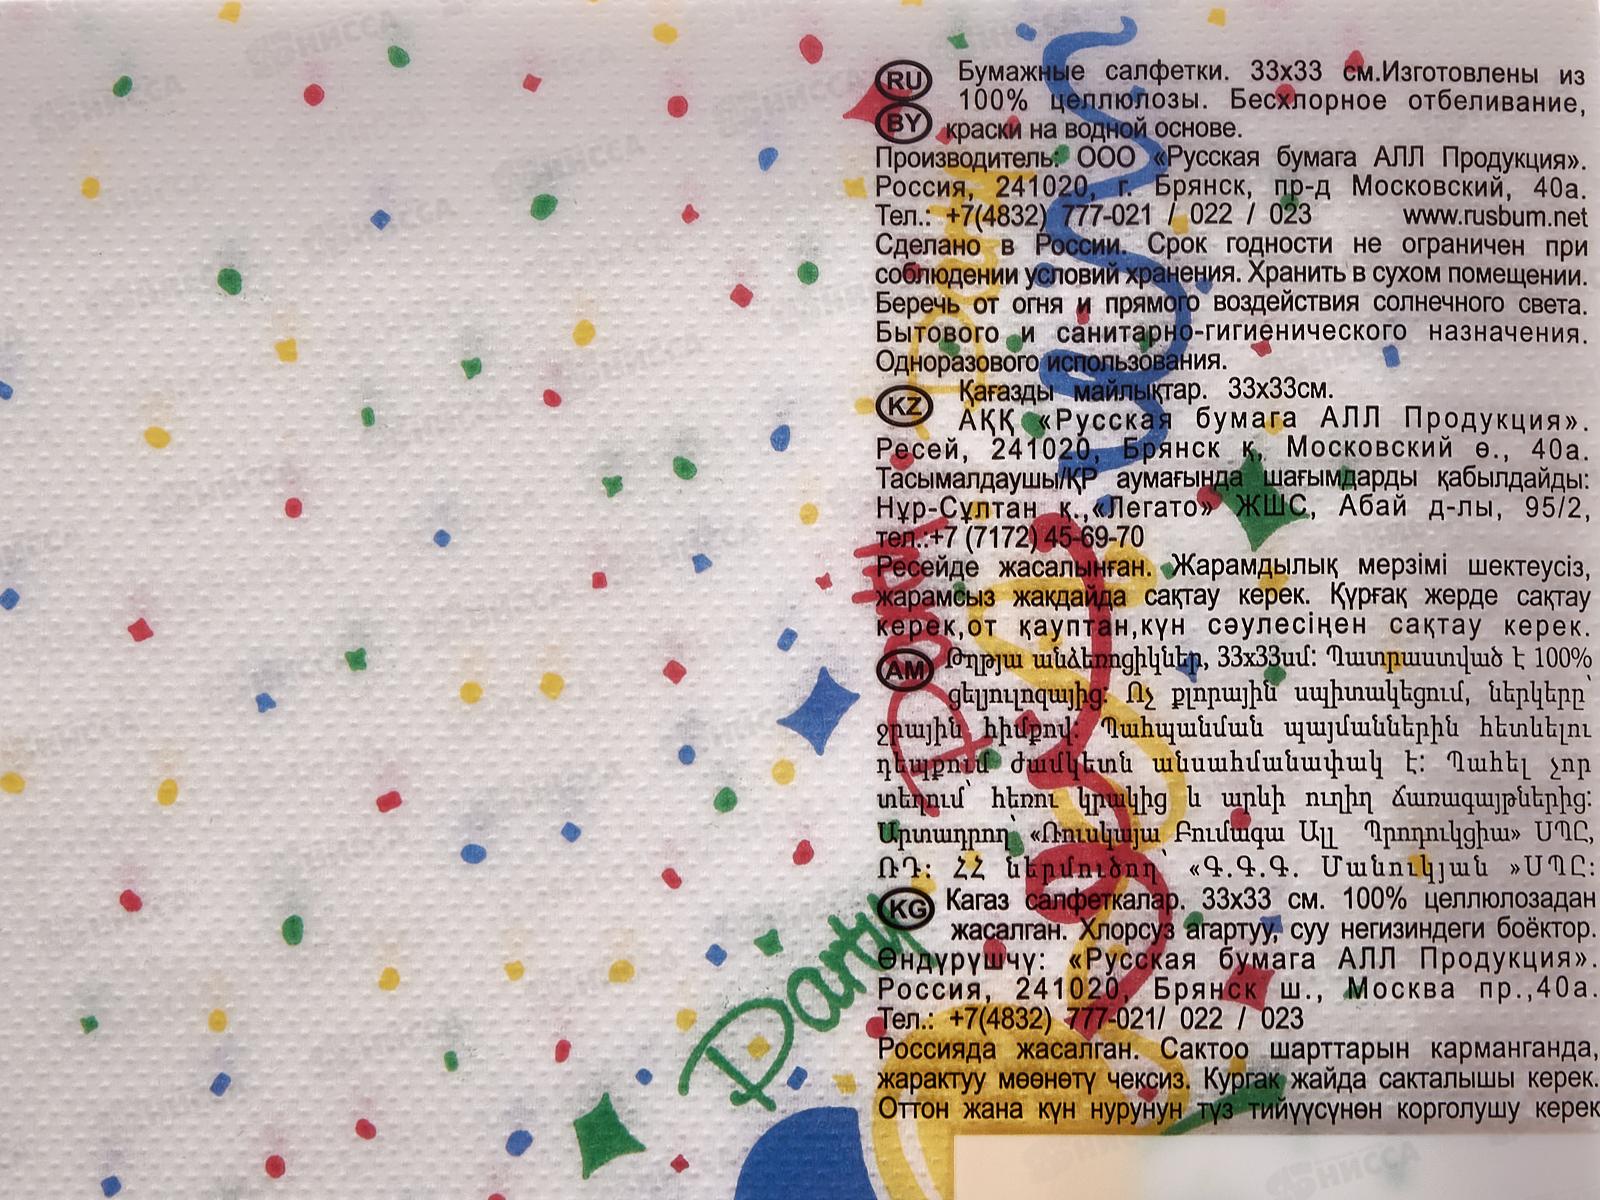 RU Бумажные салфетки. 33x33 см.Изготовлены из
BY 100% целлюлозы. Бесхлорное отбеливание,
краски на водной основе.
Производитель: ООО «Русская бумага АЛЛ Продукция».
Россия, 241020, г. Брянск, пр-д Московский, 40а.
Тел.: +7(4832) 777-021 / 022 / 023 www.rusbum.net
Сделано в России. Срок годности не ограничен при
соблюдении условий хранения. Хранить в сухом помещении.
Беречь от огня и прямого воздействия солнечного света.
Бытового и санитарно-гигиенического назначения.
Одноразового использования.
KZ Қағазды майлықтар. 33x33см.
АҚҚ «Русская бумага АЛЛ Продукция».
Ресей, 241020, Брянск қ, Московский ө., 40а.
Тасымалдаушы/ҚР аумағында шағымдарды қабылдайды:
Нұр-Сұлтан қ.,«Легато» ЖШС, Абай д-лы, 95/2,
тел.:+7 (7172) 45-69-70
Ресейде жасалынған. Жарамдылық мерзімі шектеусіз,
жарамсыз жақдайда сақтау керек. Құрғақ жерде сақтау
керек,от қауптан,күн сәулесіңен сақтау керек.
AM Թղթյա անձեռոցիկներ, 33x33սմ: Պատրաստված է 100%
ցելյուլոզայից: Ոչ քլորային սպիտակեցում, ներկերը՝
ջրային հիմքով: Պահպանման պայմաններին հետևելու
դեպքում ժամկետն անսահմանափակ է: Պահել չոր
տեղում՝ հեռու կրակից և արևի ուղիղ ճառագայթներից:
Արտադրող՝ «Ռուսկայա Բումագա Ալլ Պրոդուկցիա» ՍՊԸ,
ՌԴ: ՀՀ ներմուծող՝ «Գ.Գ.Գ. Մանուկյան »ՍՊԸ:
KG Кагаз салфеткалар. 33x33 см. 100% целлюлозадан
жасалган. Хлорсуз агартуу, суу негизиндеги боёктор.
Өндүрүшчү: «Русская бумага АЛЛ Продукция».
Россия, 241020, Брянск ш., Москва пр.,40а.
Тел.: +7(4832) 777-021/ 022 / 023
Россияда жасалган. Сактоо шарттарын карманганда,
жарактуу мөөнөтү чексиз. Кургак жайда сакталышы керек.
Оттон жана күн нурунун түз тийүүсүнөн корголушу керек
Party
Party
Party